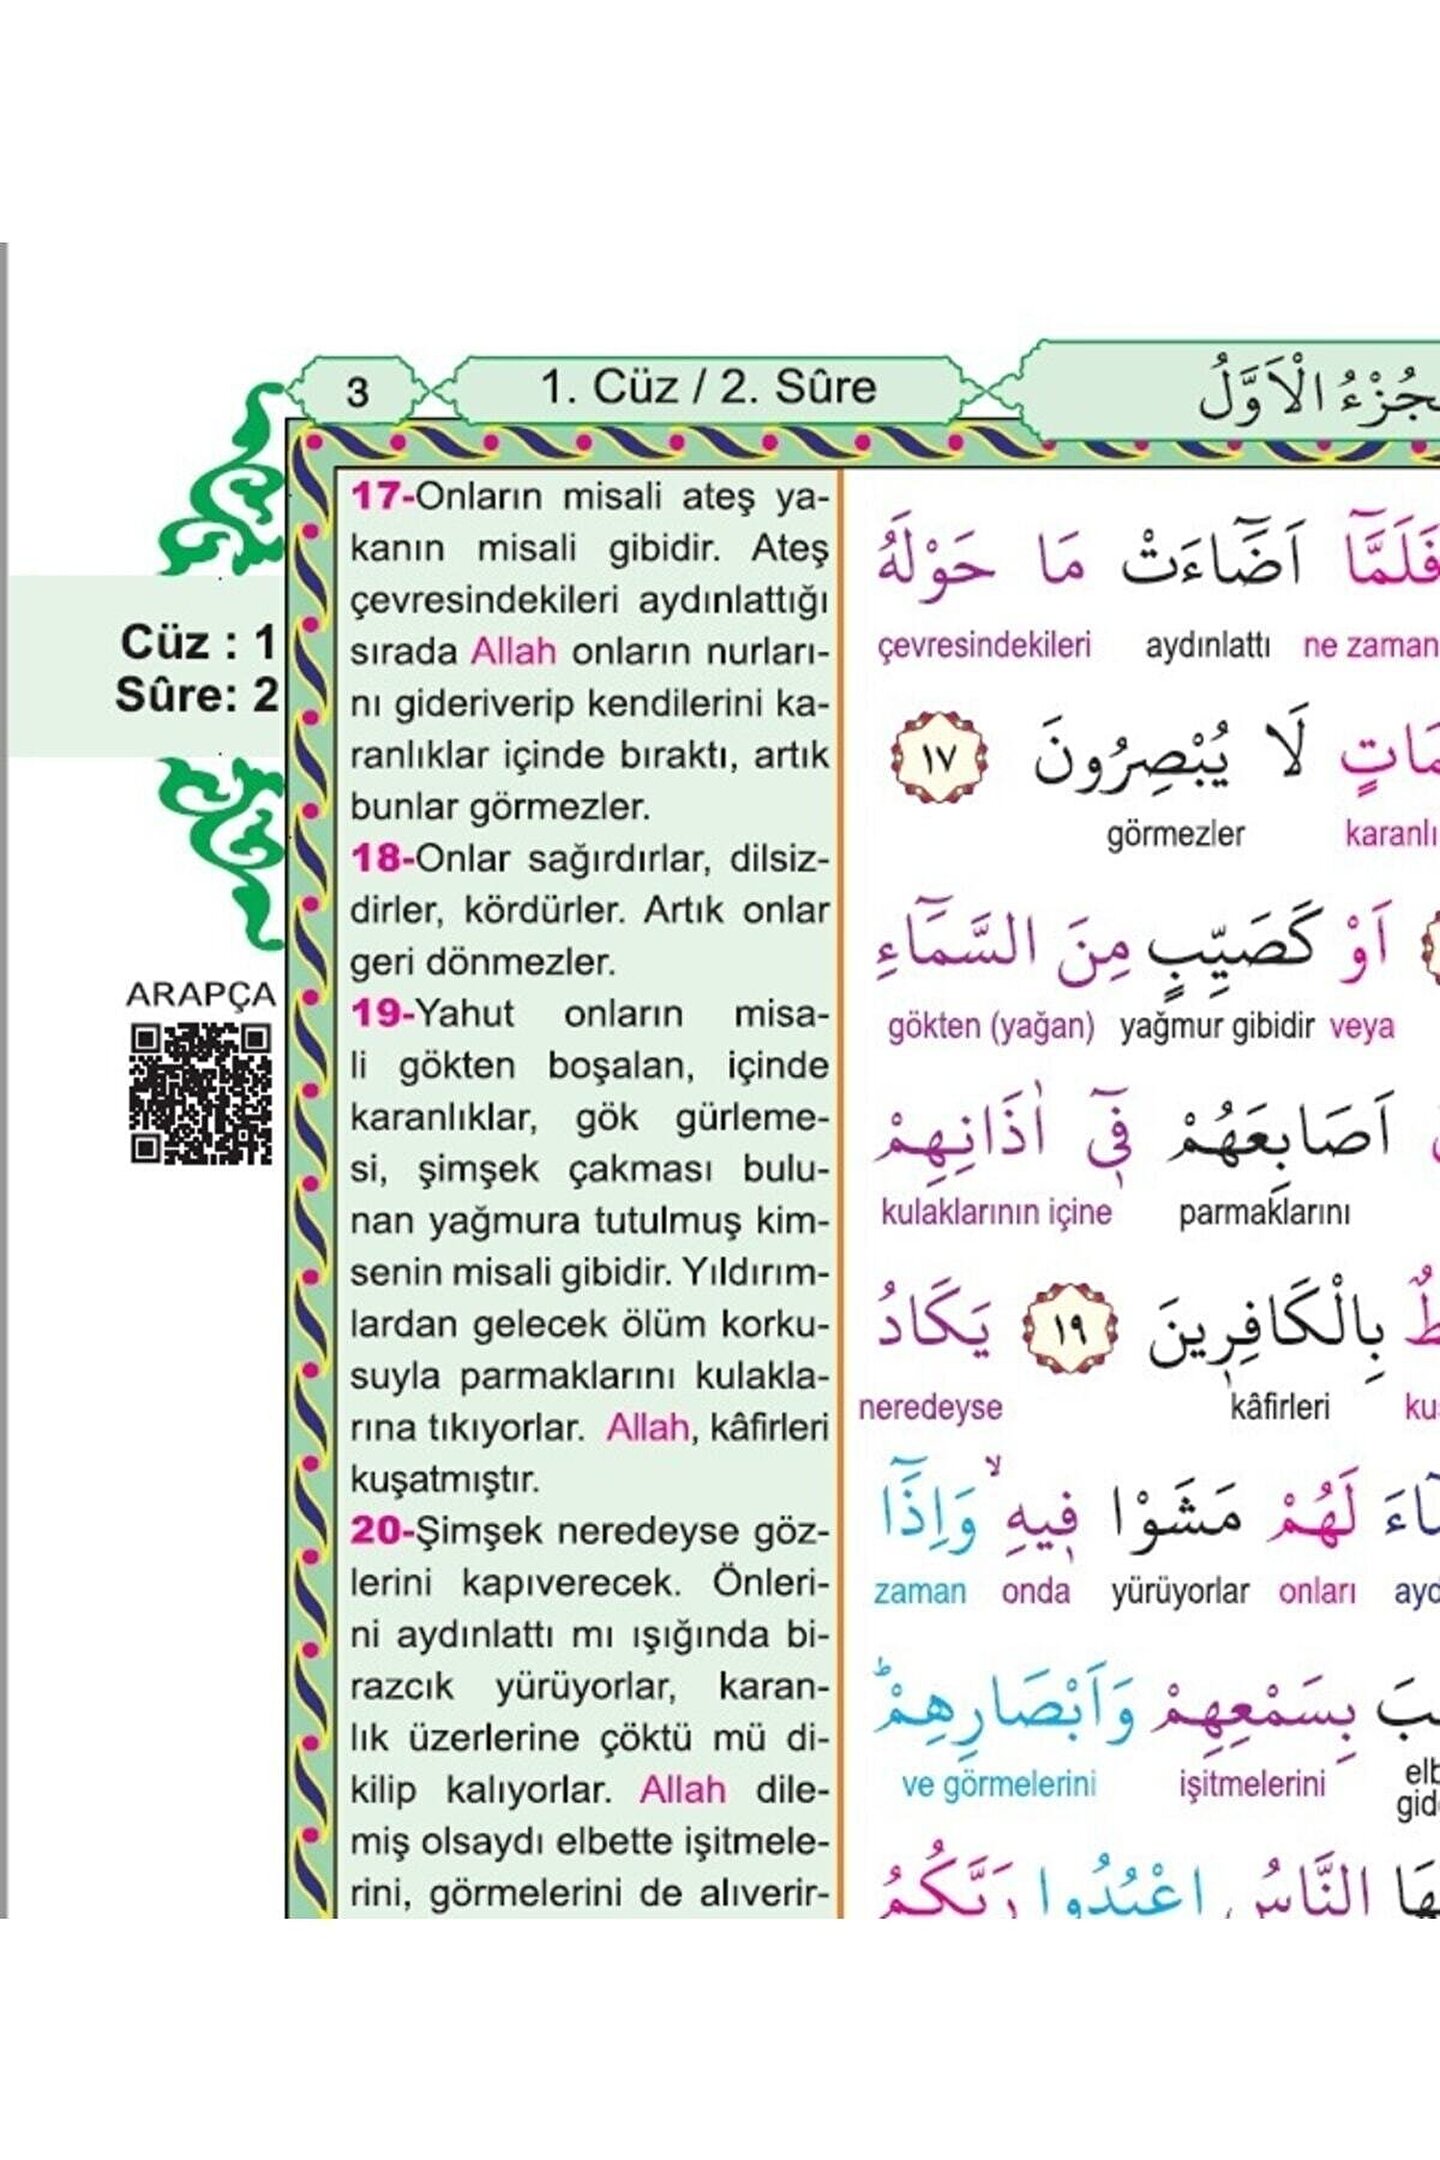 3
1. Cüz / 2. Sûre
الْاَوَّلُ
Cüz : 1
Sûre: 2
ARAPÇA
17-Onların misali ateş ya-
kanın misali gibidir. Ateş
çevresindekileri aydınlattığı
sırada Allah onların nurları-
nı gideriverip kendilerini ka-
ranlıklar içinde bıraktı, artık
bunlar görmezler.
18-Onlar sağırdırlar, dilsiz-
dirler, kördürler. Artık onlar
geri dönmezler.
19-Yahut onların misa-
li gökten boşalan, içinde
karanlıklar, gök gürleme-
si, şimşek çakması bulu-
nan yağmura tutulmuş kim-
senin misali gibidir. Yıldırım-
lardan gelecek ölüm korku-
suyla parmaklarını kulakla-
rına tıkıyorlar. Allah, kâfirleri
kuşatmıştır.
20-Şimşek neredeyse göz-
lerini kapıverecek. Önleri-
ni aydınlattı mı ışığında bi-
razcık yürüyorlar, karan-
lık üzerlerine çöktü mü di-
kilip kalıyorlar. Allah dile-
miş olsaydı elbette işitmele-
rini, görmelerini de alıverir-
فَلَمَّٓا اَضَٓاءَتْ مَا حَوْلَهُ
çevresindekileri aydınlattı ne zaman
لَا يُبْصِرُونَ ١٧
görmezler
اَوْ كَصَيِّبٍ مِنَ السَّمَٓاءِ
gökten (yağan) yağmur gibidir veya
اَصَابِعَهُمْ فٖٓي اٰذَانِهِمْ
kulaklarının içine parmaklarını
بِالْكَافِرٖينَ ١٩ يَكَادُ
neredeyse kâfirleri
لَهُمْ مَشَوْا فٖيهِۙ وَاِذَٓا
zaman onda yürüyorlar onları
بِسَمْعِهِمْ وَاَبْصَارِهِمْۜ
ve görmelerini işitmelerini
النَّاسُ اعْبُدُوا رَبَّكُمُ